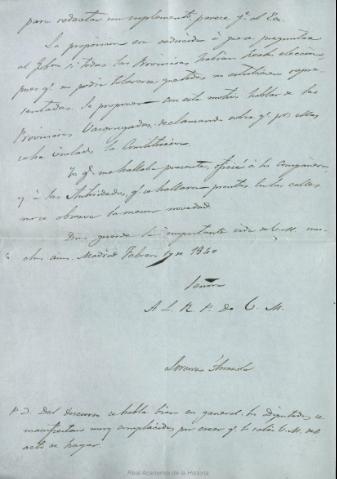 para redactar un suplemento, parece qe. al Sa.
Se propusieron en reducido á qe. para preguntar
al Gobno. si todas las Provincias habian hecho eleccion,
pues qe. no podia tolerarse que estas no estubieran repre-
sentadas. Se proponen con este motivo hablar de las
Provincias Vascongadas, declamando sobre qe. por ellas
esta violada la Constitucion.
Yo qe. me hallaba presente, oficié á la
y á las Autoridades, qe. se hallaron prontas en las calles
no se observa la menor novedad.
Dios guarde la importante vida de V. M. mu-
chos años. Madrid Febrero 19 de 1840
Señora
A. L. R. P. de V. M.
Lorenzo
P. D. Del discurso se habla bien en general: los Diputados se
manifiestan muy complacidos por creer qe. le salió á V. M. del
acto se hagan.
Real Academia de la Historia